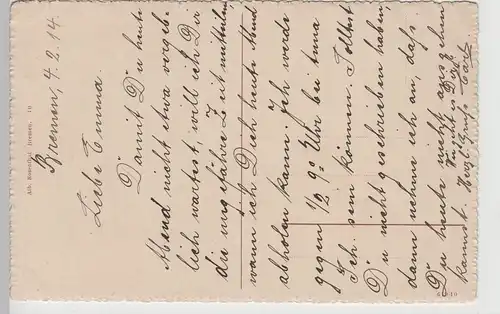 Bremen, 4.2.14.
Liebe Emma.
Damit Du heute
Abend nicht etwa vergeb-
lich wartest, will ich Dir
die ungefähre Zeit mitteilen
wann ich Dich heute Abend
abholen kann. Ich werde
gegen 1/2 9 Uhr bei
Ich. sein können. Solltest
Du nicht geschrieben haben,
dann nehme ich an, daß
Du heute nicht ausgehen
kannst.
Herzl. Gruß Carl
Bremen. 10